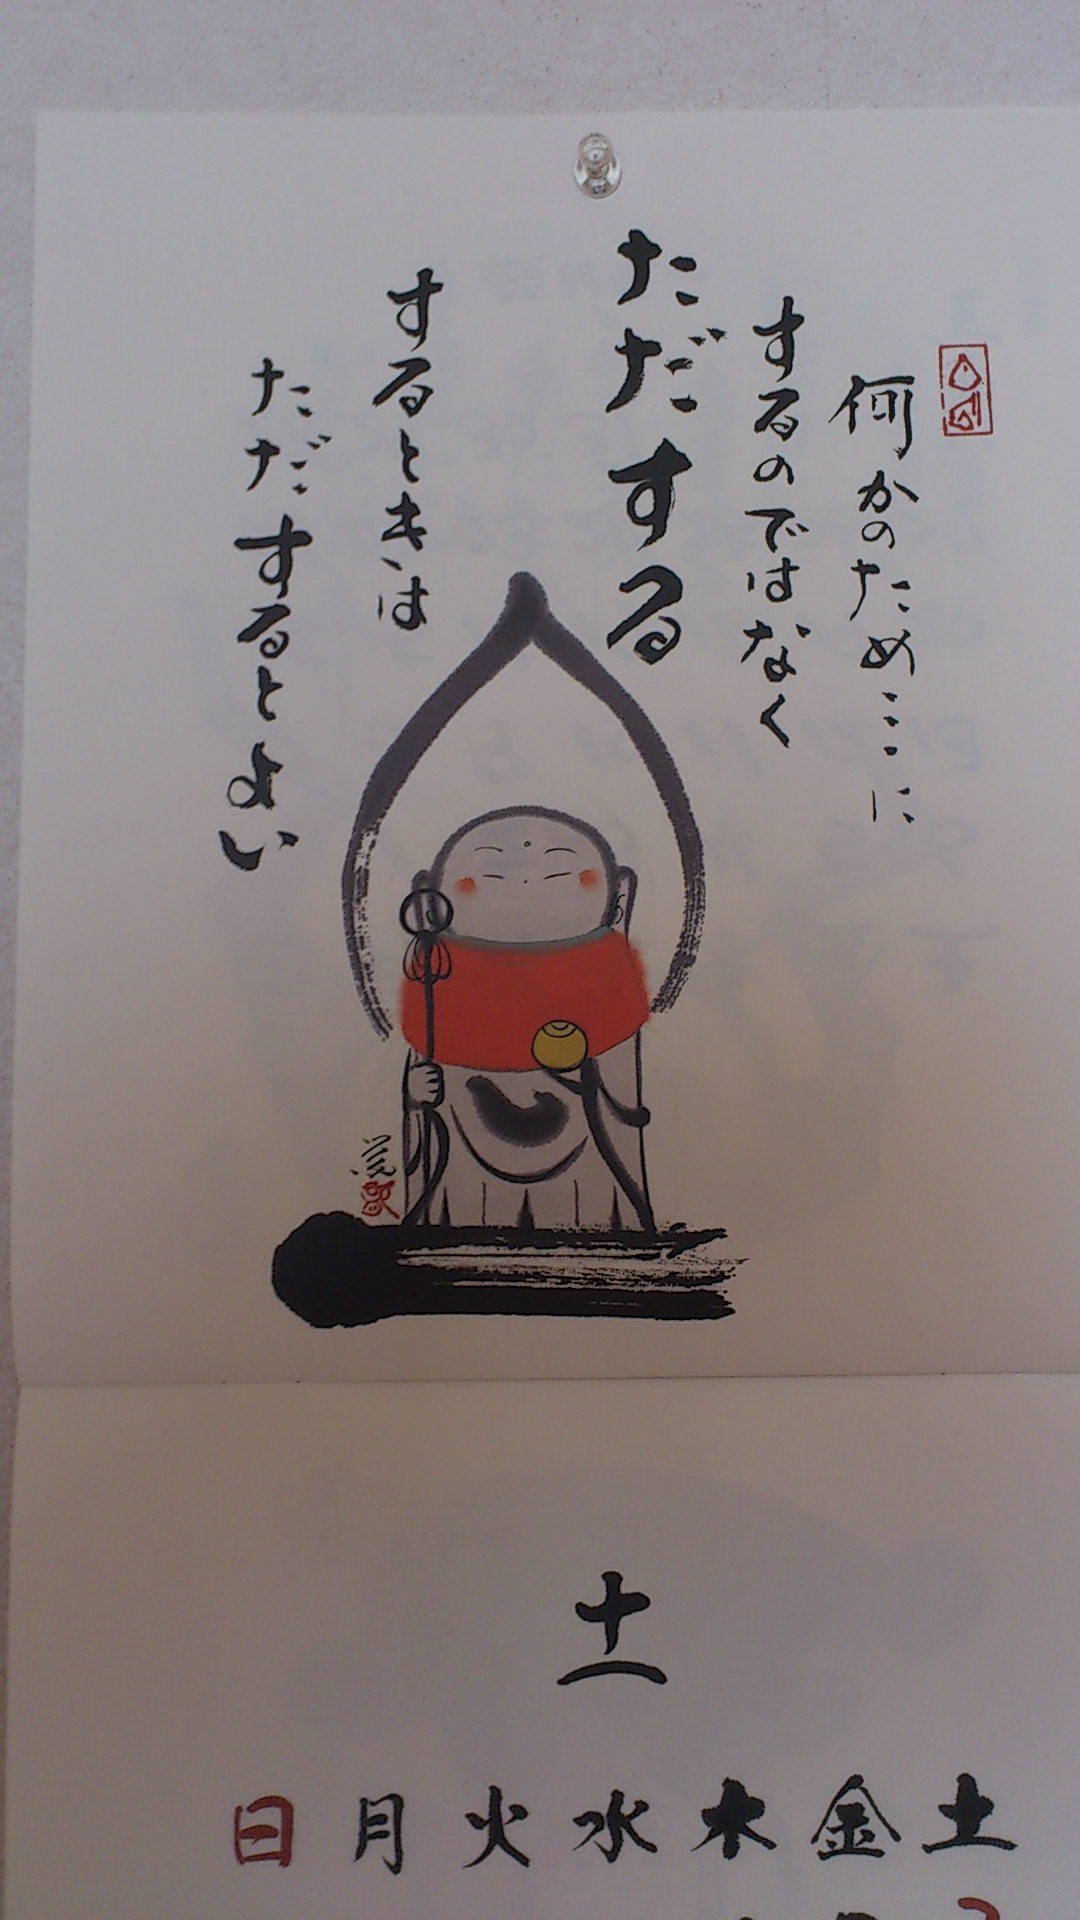 何かのため…に
するのではなく
ただする
するときは
ただするとよい
十一
日 月 火 水 木 金 土